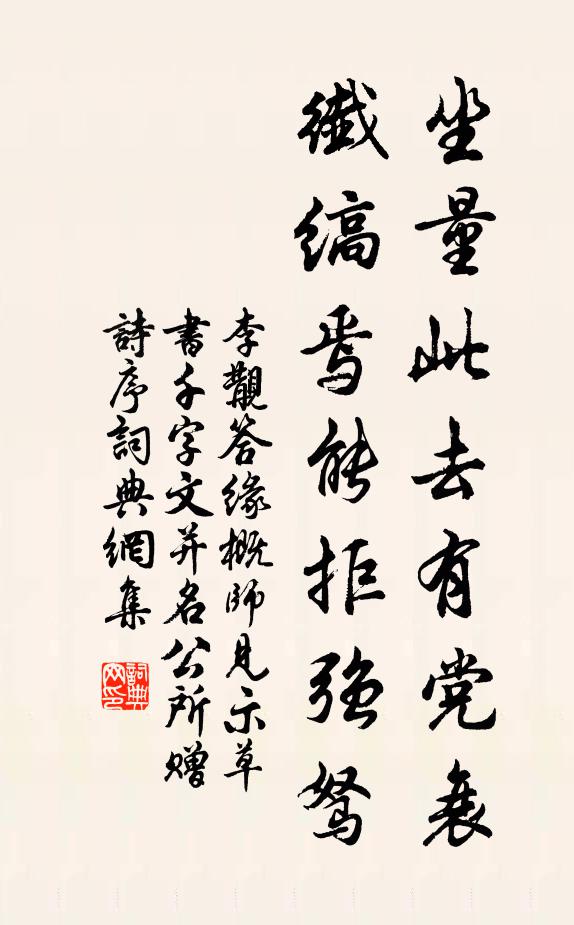 坐量此去有党衰
纖縞焉能拒强駑
李覯答缘概師見示草
書千字文并名公所赠
詩序詞典網集
詞典网印